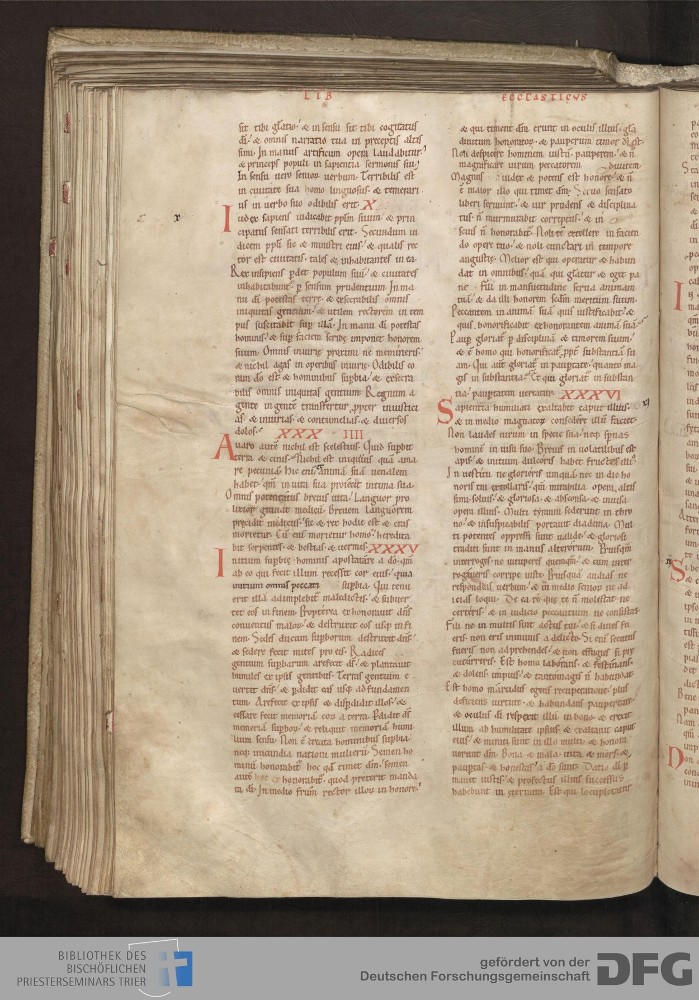 LIB
ECCLASTICUS
sit tibi glatio. & in sensu sit tibi cogitatus
di. & omnis narratio tua in preceptis altis
simi. In manus artificum opera laudabitur
& princeps populi in sapientia sermonis sui.
In sensu vero seniorum verbum. Terribilis est
in civitate sua homo linguosus. & temerari
us in verbo suo odibilis erit. X
Iudex sapiens iudicabit pplm suum. & prin
cipatus sensati terribilis erit. Secundum iu
dicem ppli sic & ministri eius. & qualis rec
tor est civitatis. tales & inhabitantes in ea.
Rex insipiens perdet populum suum. & civitates
inhabitabuntur per sensum prudentium. In ma
nu di potestas terre. & execrabilis omnis
iniquitas gentium. & utilem rectorem in tem
pus suscitabit sup illam. In manu di potestas
hominis. & sup faciem scribe imponet honorem
suum. Omnis iniurie proximi ne memineris.
& nichil agas in operibus iniurie. Odibilis co
ram do est & hominibus supbia. & execra
bilis omnis iniquitas gentium. Regnum a
gente in gentem transfertur propter iniusticias
& iniurias. & contumelias. & diversos
dolos. XXX IIII
Avaro autem nichil est scelestius. Quid supbit
terra & cinis. Nichil est iniquius quam ama
re pecuniam. Hic enim & animam suam venalem
habet. qm in vita sua proiecit intima sua.
Omnis potentatus brevis vita. Languor pro
lixior gravat medicum. Brevem languorem
precidit medicus. sic & rex hodie est & cras
morietur. Cum enim morietur homo. heredita
bit serpentes. & bestias. & vermes. XXXV
Initium supbie hominis apostatare a do. qm
ab eo qui fecit illum recessit cor eius. quia
initium omnis peccati supbia. Qui tenu
erit illam adimplebitur maledictis. & subver
tet eum in finem. Propterea exhonoravit dns
conventus malorum. & destruxit eos usq in fi
nem. Sedes ducum supborum destruxit dns.
& sedere fecit mites pro eis. Radices
gentium supbarum arefecit ds. & plantavit
humiles ex ipsis gentibus. Terras gentium e
vertit dns. & perdidit eas usq ad fundamen
tum. Arefecit ex ipsis & disperdidit illos. &
cessare fecit memoriam eorum a terra. Perdidit ds
memoriam supborum. & reliquit memoriam humi
lium sensu. Non est creata hominibus supbia.
neq iracundia nationi mulierum. Semen ho
minum honorabitur hoc quod timet dm. semen
autem hoc exhonorabitur. quod preterit manda
ta di. In medio fratrum rector illorum in honore.
& qui timent dm erunt in oculis illius. gla
divitum honoratorum. & pauperum timor di est.
Noli despicere hominem iustum pauperem. & non
magnificare virum peccatorem divitem.
Magnus iudex & potens est honore. & non
est maior illo qui timet dm. Servo sensato
liberi servient. & vir prudens & disciplina
tus non murmurabit correptus. & in
scius non honorabitur. Noli te extollere in facien
do opere tuo. & noli cunctari in tempore
angustie. Melior est qui operatur & habun
dat in omnibus. quam qui glatur & eget pa
ne. Fili in mansuetudine serva animam
tuam. & da illi honorem secundum meritum suum.
Peccantem in animam suam quis iustificabit. &
quis honorificabit exhonorantem animam suam.
Pauper gloriatur per disciplinam & timorem suum.
& est homo qui honorificatur propter substantiam su
am. Qui autem gloriatur in paupertate. quanto ma
gis in substantia. Et qui gloriatur in substan
tia. paupertatem vereatur. XXXVI
Sapientia humiliati exaltabit caput illius.
& in medio magnatorum consedere illum faciet.
Non laudes virum in specie sua. neq spernas
hominem in visu suo. Brevis in volatilibus est
apis. & initium dulcoris habet fructus illius.
In vestitu ne glorieris umquam. nec in die ho
noris tui extollaris. qm mirabilia opera altis
simi solius. & gloriosa. & absconsa. & invisa
opera illius. Multi tyranni sederunt in thro
no. & insuspicabilis portavit diadema. Mul
ti potentes oppressi sunt valide. & gloriosi
traditi sunt in manus alterorum. Priusquam
interroges ne vituperes quemquam. & cum inter
rogaveris corripe iuste. Priusquam audias ne
respondeas verbum. & in medio seniorum ne ad
icias loqui. De ea re que te non molestat ne
certeris. & in iudicio peccantium ne consistas.
Fili ne in multis sint actus tui. & si dives fu
eris. non eris inmunis a delicto. Si enim secutus
fueris non adprehendes. & non effugies si pre
cucurreris. Est homo laborans. & festinans.
& dolens impius. & tantomagis non habundat.
Est homo marcidus egens recuperatione. plus
deficiens virtute. & habundans paupertate.
& oculus di respexit illum in bono. & erexit
illum ab humilitate ipsius. & exaltavit caput
eius. & mirati sunt in illo multi. & honora
verunt dm. Bona & mala. vita & mors. &
paupertas. & honestas. a do sunt. Datio di per
manet iustis. & profectus illius successus
habebunt in eternum. Est qui locupletatur
BIBLIOTHEK DES
BISCHÖFLICHEN
PRIESTERSEMINARS TRIER
gefördert von der
Deutschen Forschungsgemeinschaft
DFG